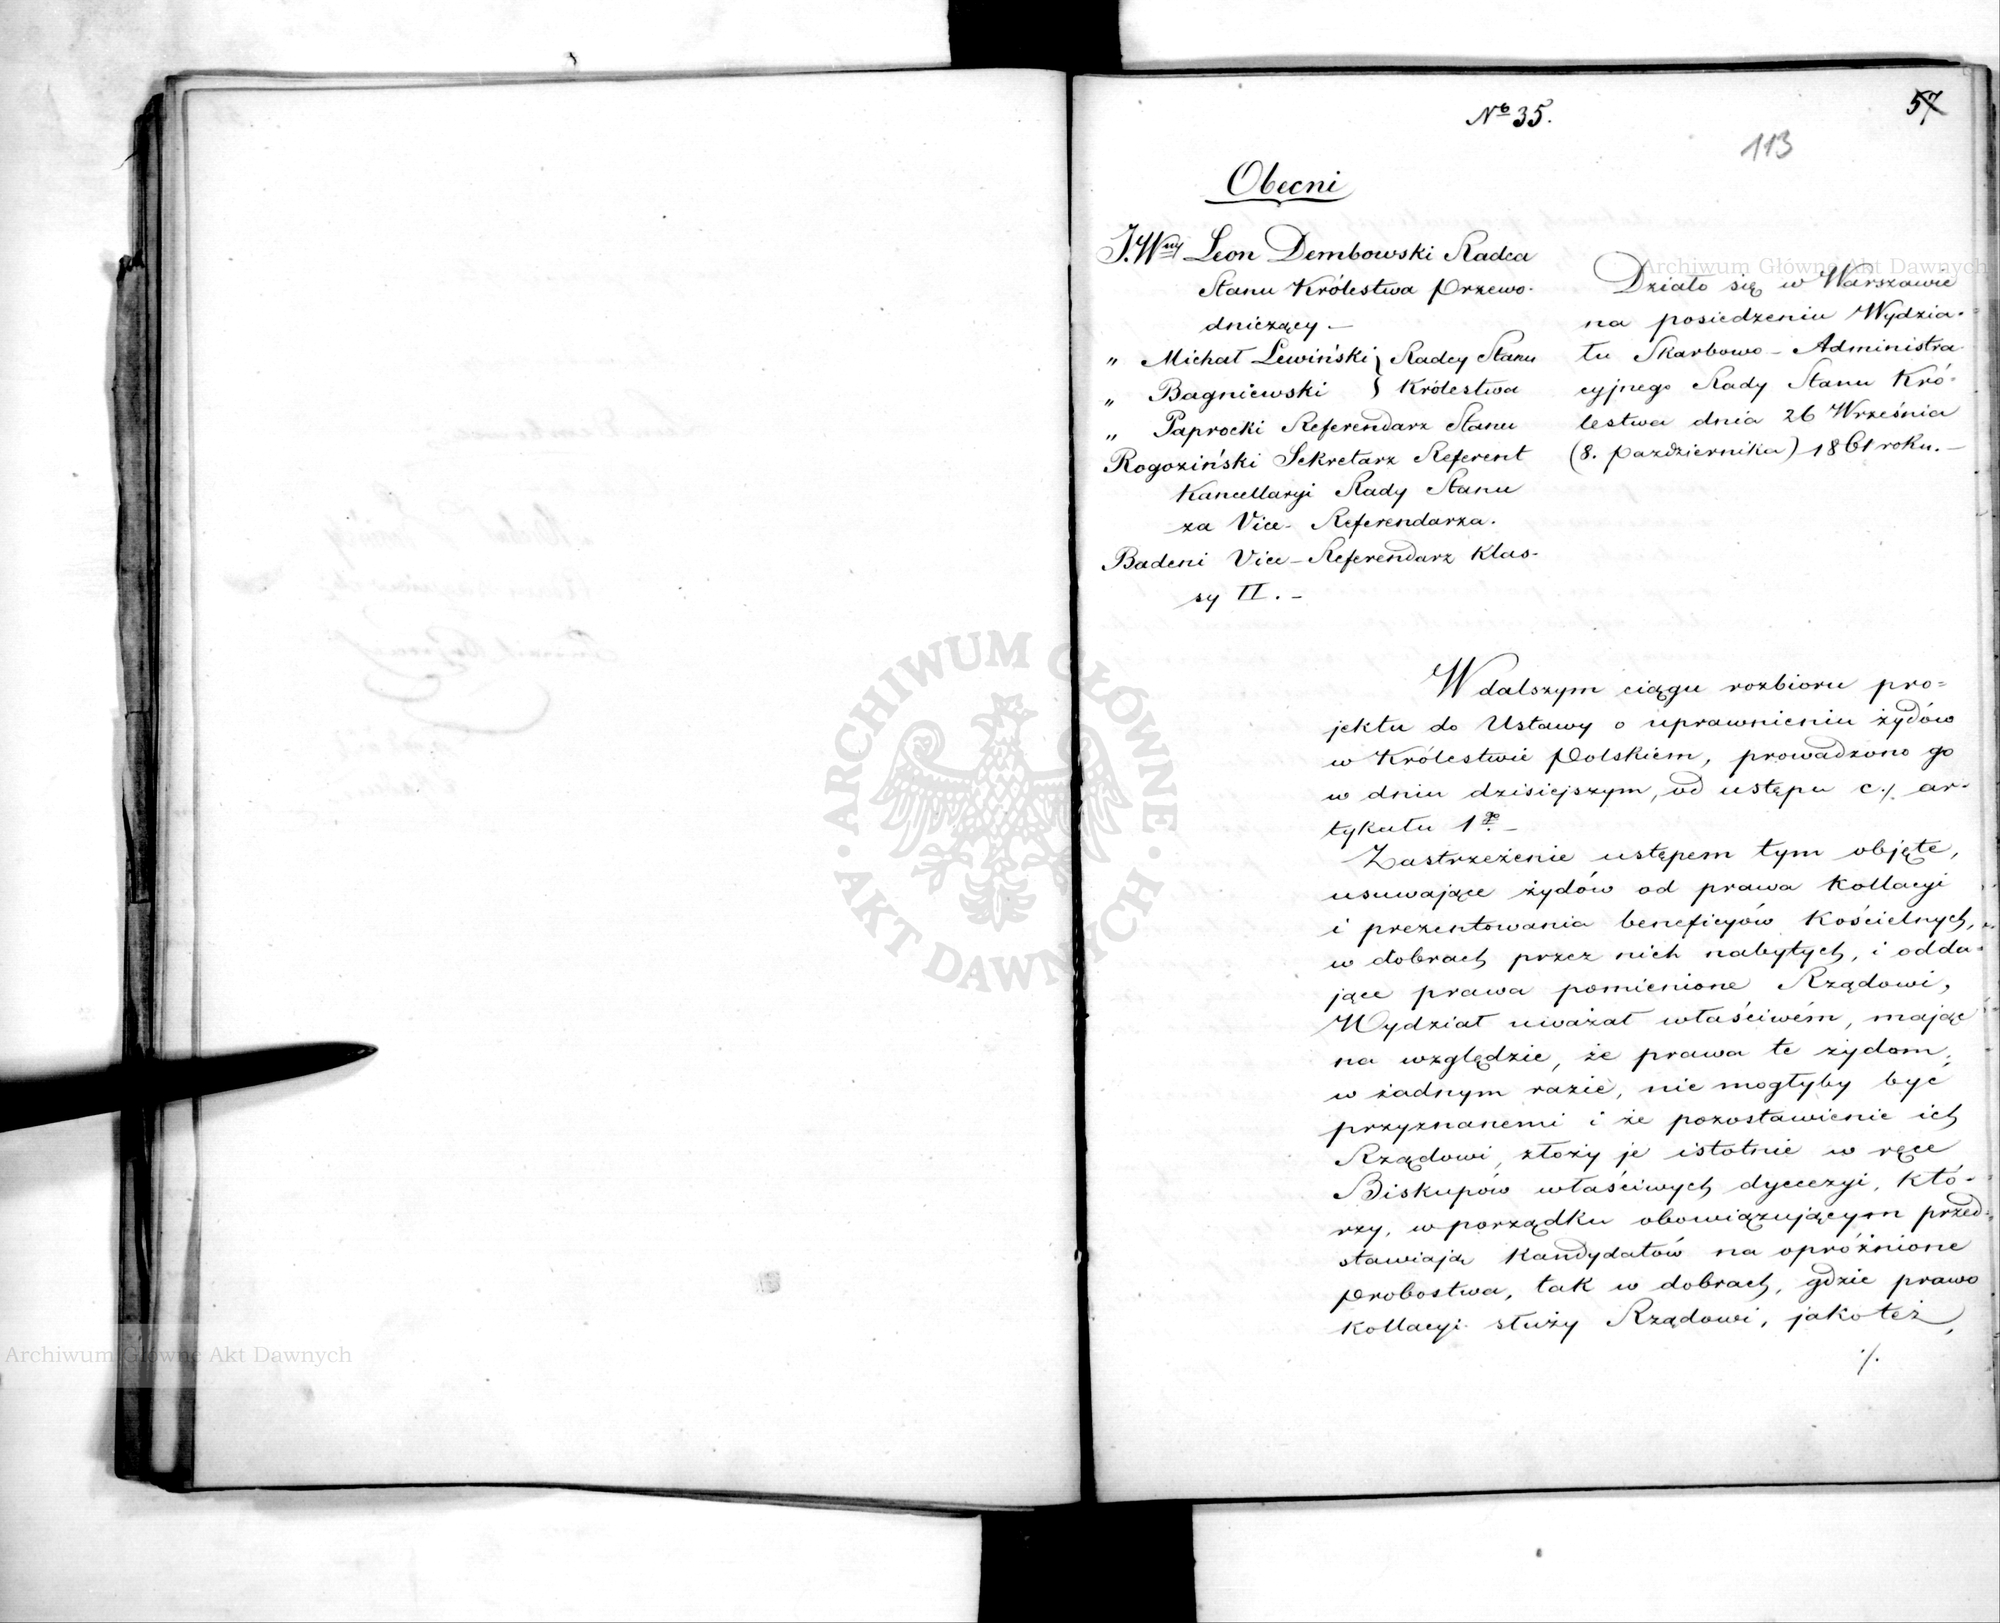 57
No 35.
113
Obecni
J.Wny Leon Dembowski Radca
Stanu Królestwa Przewo-
dniczący —
" Michał Lewiński } Radcy Stanu
" Bagniewski } Królestwa
" Paprocki Referendarz Stanu
Rogoziński Sekretarz Referent
Kancellaryi Rady Stanu
za Vice-Referendarza.
Badeni Vice-Referendarz Klas-
sy II. —
Działo się w Warszawie
na posiedzeniu Wydzia-
łu Skarbowo-Administra
cyjnego Rady Stanu Kró-
lestwa dnia 26 Września
(8. Października) 1861 roku. —
W dalszym ciągu rozbioru pro=
jektu do Ustawy o uprawnieniu żydów
w Królestwie Polskiem, prowadzono go
w dniu dzisiejszym, od ustępu c./. ar-
tykułu 1go —
Zastrzeżenie ustępem tym objęte,
usuwające żydów od prawa Kollacyi
i prezentowania beneficyów Kościelnych,
w dobrach przez nich nabytych, i odda-
jące prawa pomienione Rządowi,
Wydział uważał właściwém, mając
na względzie, że prawa te żydom,
w żadnym razie, nie mogłyby być
przyznanemi i że pozostawienie ich
Rządowi, złoży je istotnie w ręce
Biskupów właściwych dyecezyi, któ-
rzy, w porządku obowiązującym przed-
stawiają Kandydatów na opróżnione
Probostwa, tak w dobrach, gdzie prawo
Kollacyi służy Rządowi, jako też,
./.
Archiwum Główne Akt Dawnych
ARCHIWUM GŁÓWNE
AKT DAWNYCH
Archiwum Główne Akt Dawnych